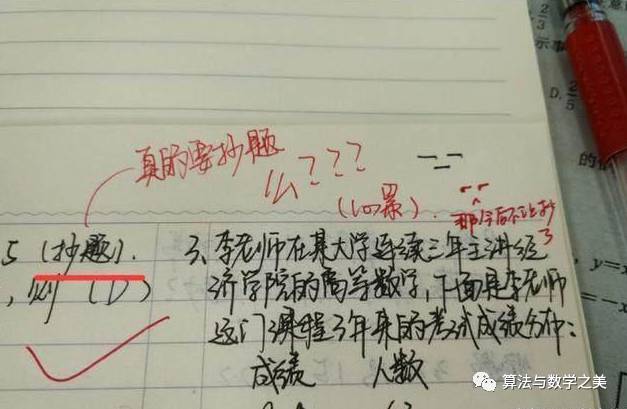 真的要抄题
么???
(心累).
那今后不让抄
了
5 (抄题).
, 则 (D)
3、李老师在某大学连续三年主讲经
济学院的高等数学,下面是李老师
这门课程3年来的考试成绩分布:
成绩 人数
2/3
示事
D. 2/5
的
y=x
=-x
算法与数学之美